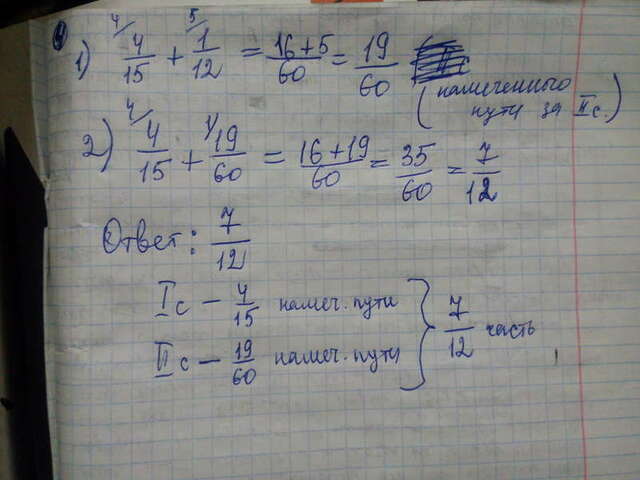 1) 4/ 4/15 + 5/ 1/12 = (16+5)/60 = 19/60
(намеченного
пути за II с.)
2) 4/ 4/15 + 1/ 19/60 = (16+19)/60 = 35/60 = 7/12
Ответ: 7/12
I с – 4/15 намеч. пути
II с – 19/60 намеч. пути } 7/12 часть